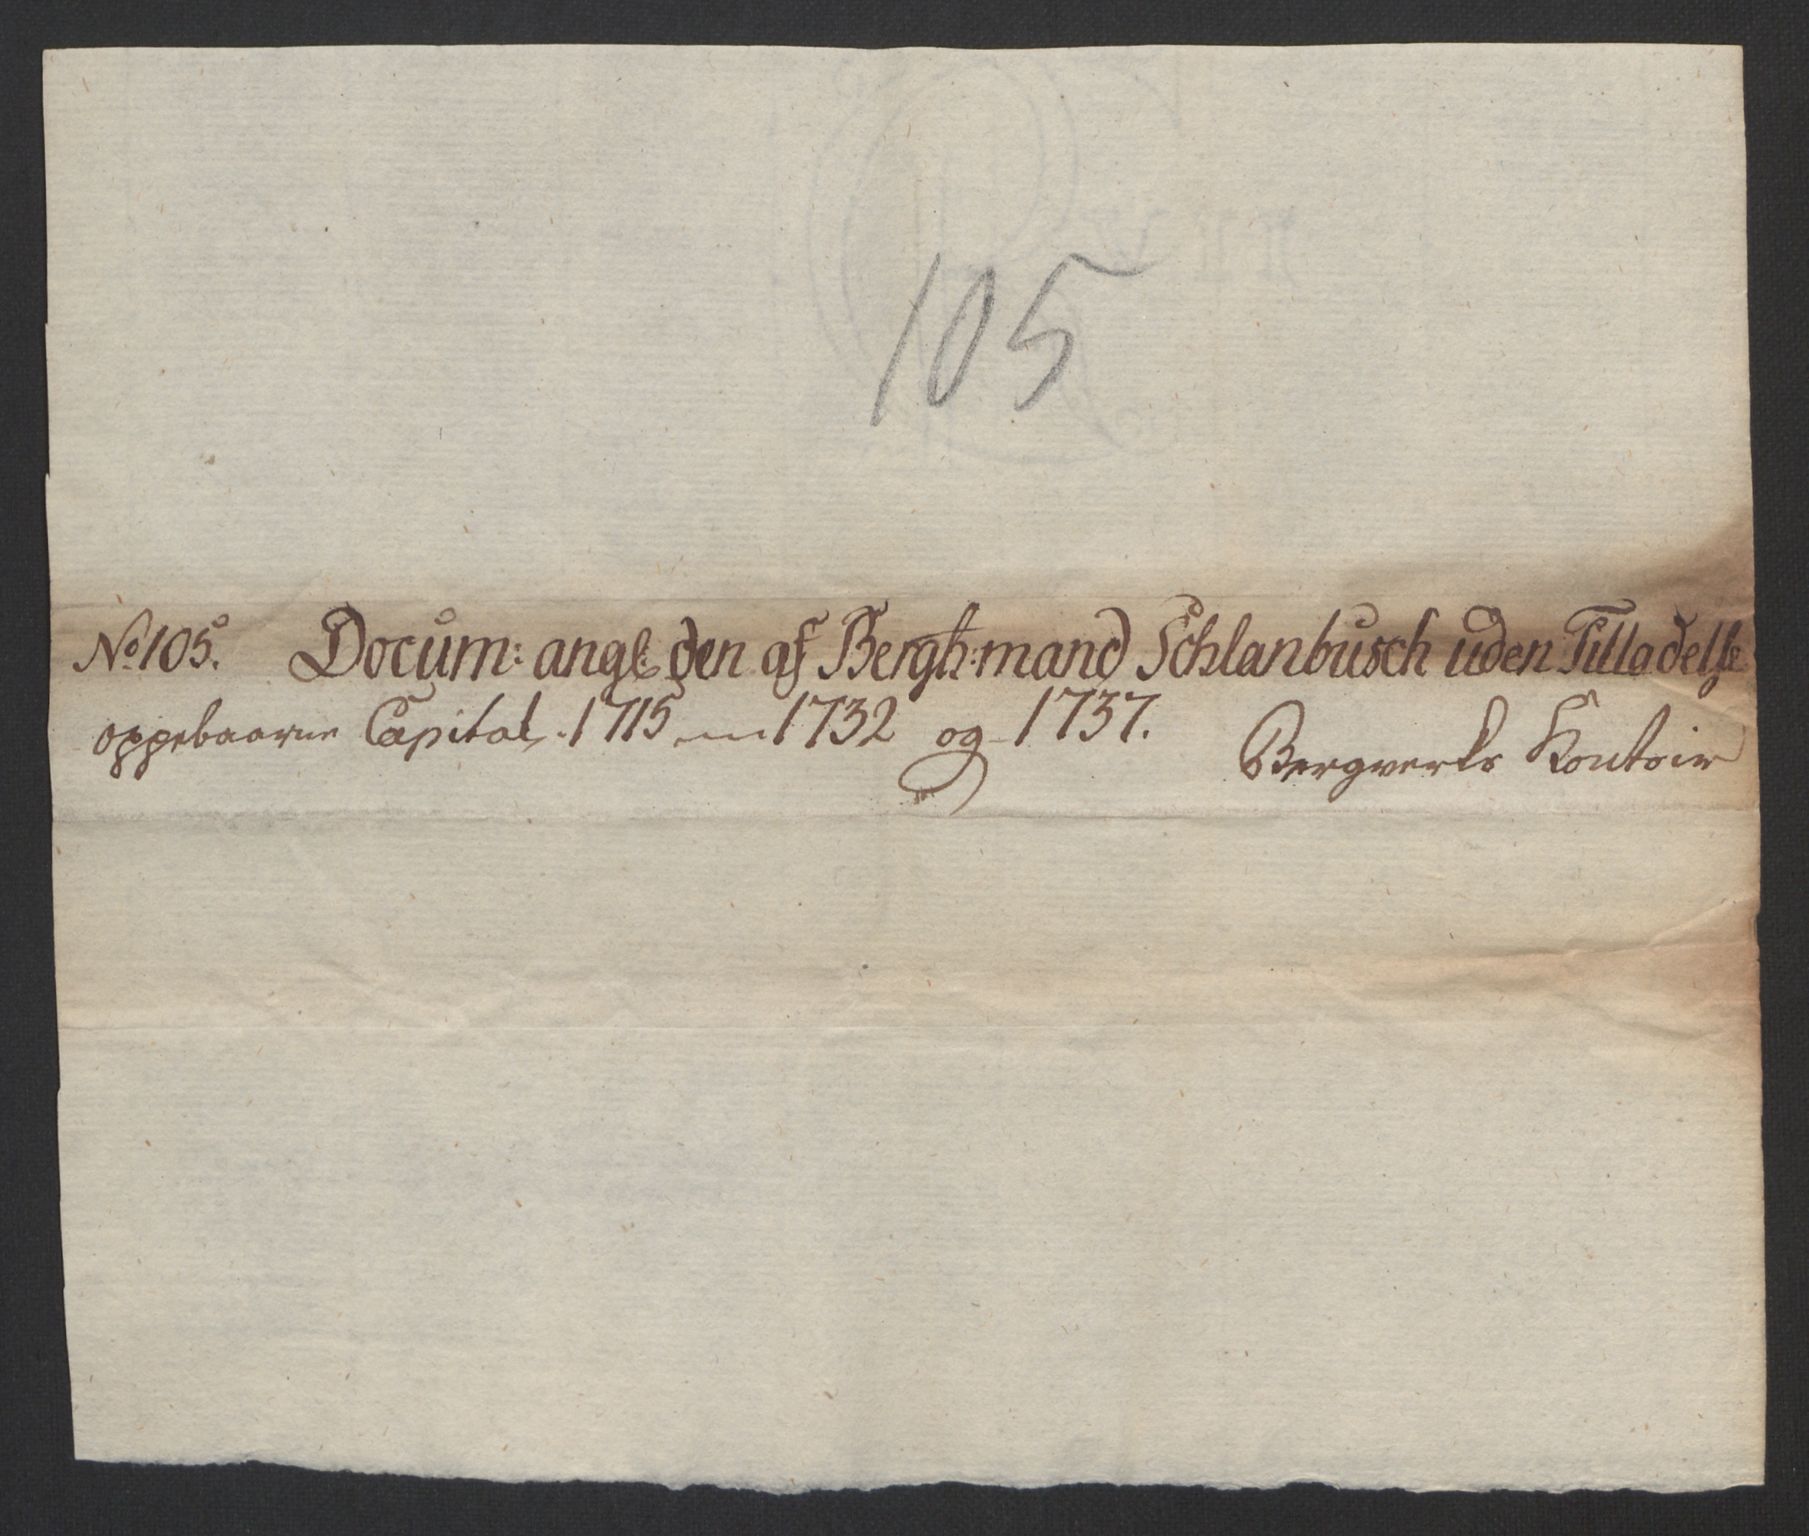 105
No 105. Docum: angl: den af Bergh:mand Schlanbusch uden Tilladelse
oppebaarne Capital. 1715 1732 og 1737.
Bergverks Kontoir